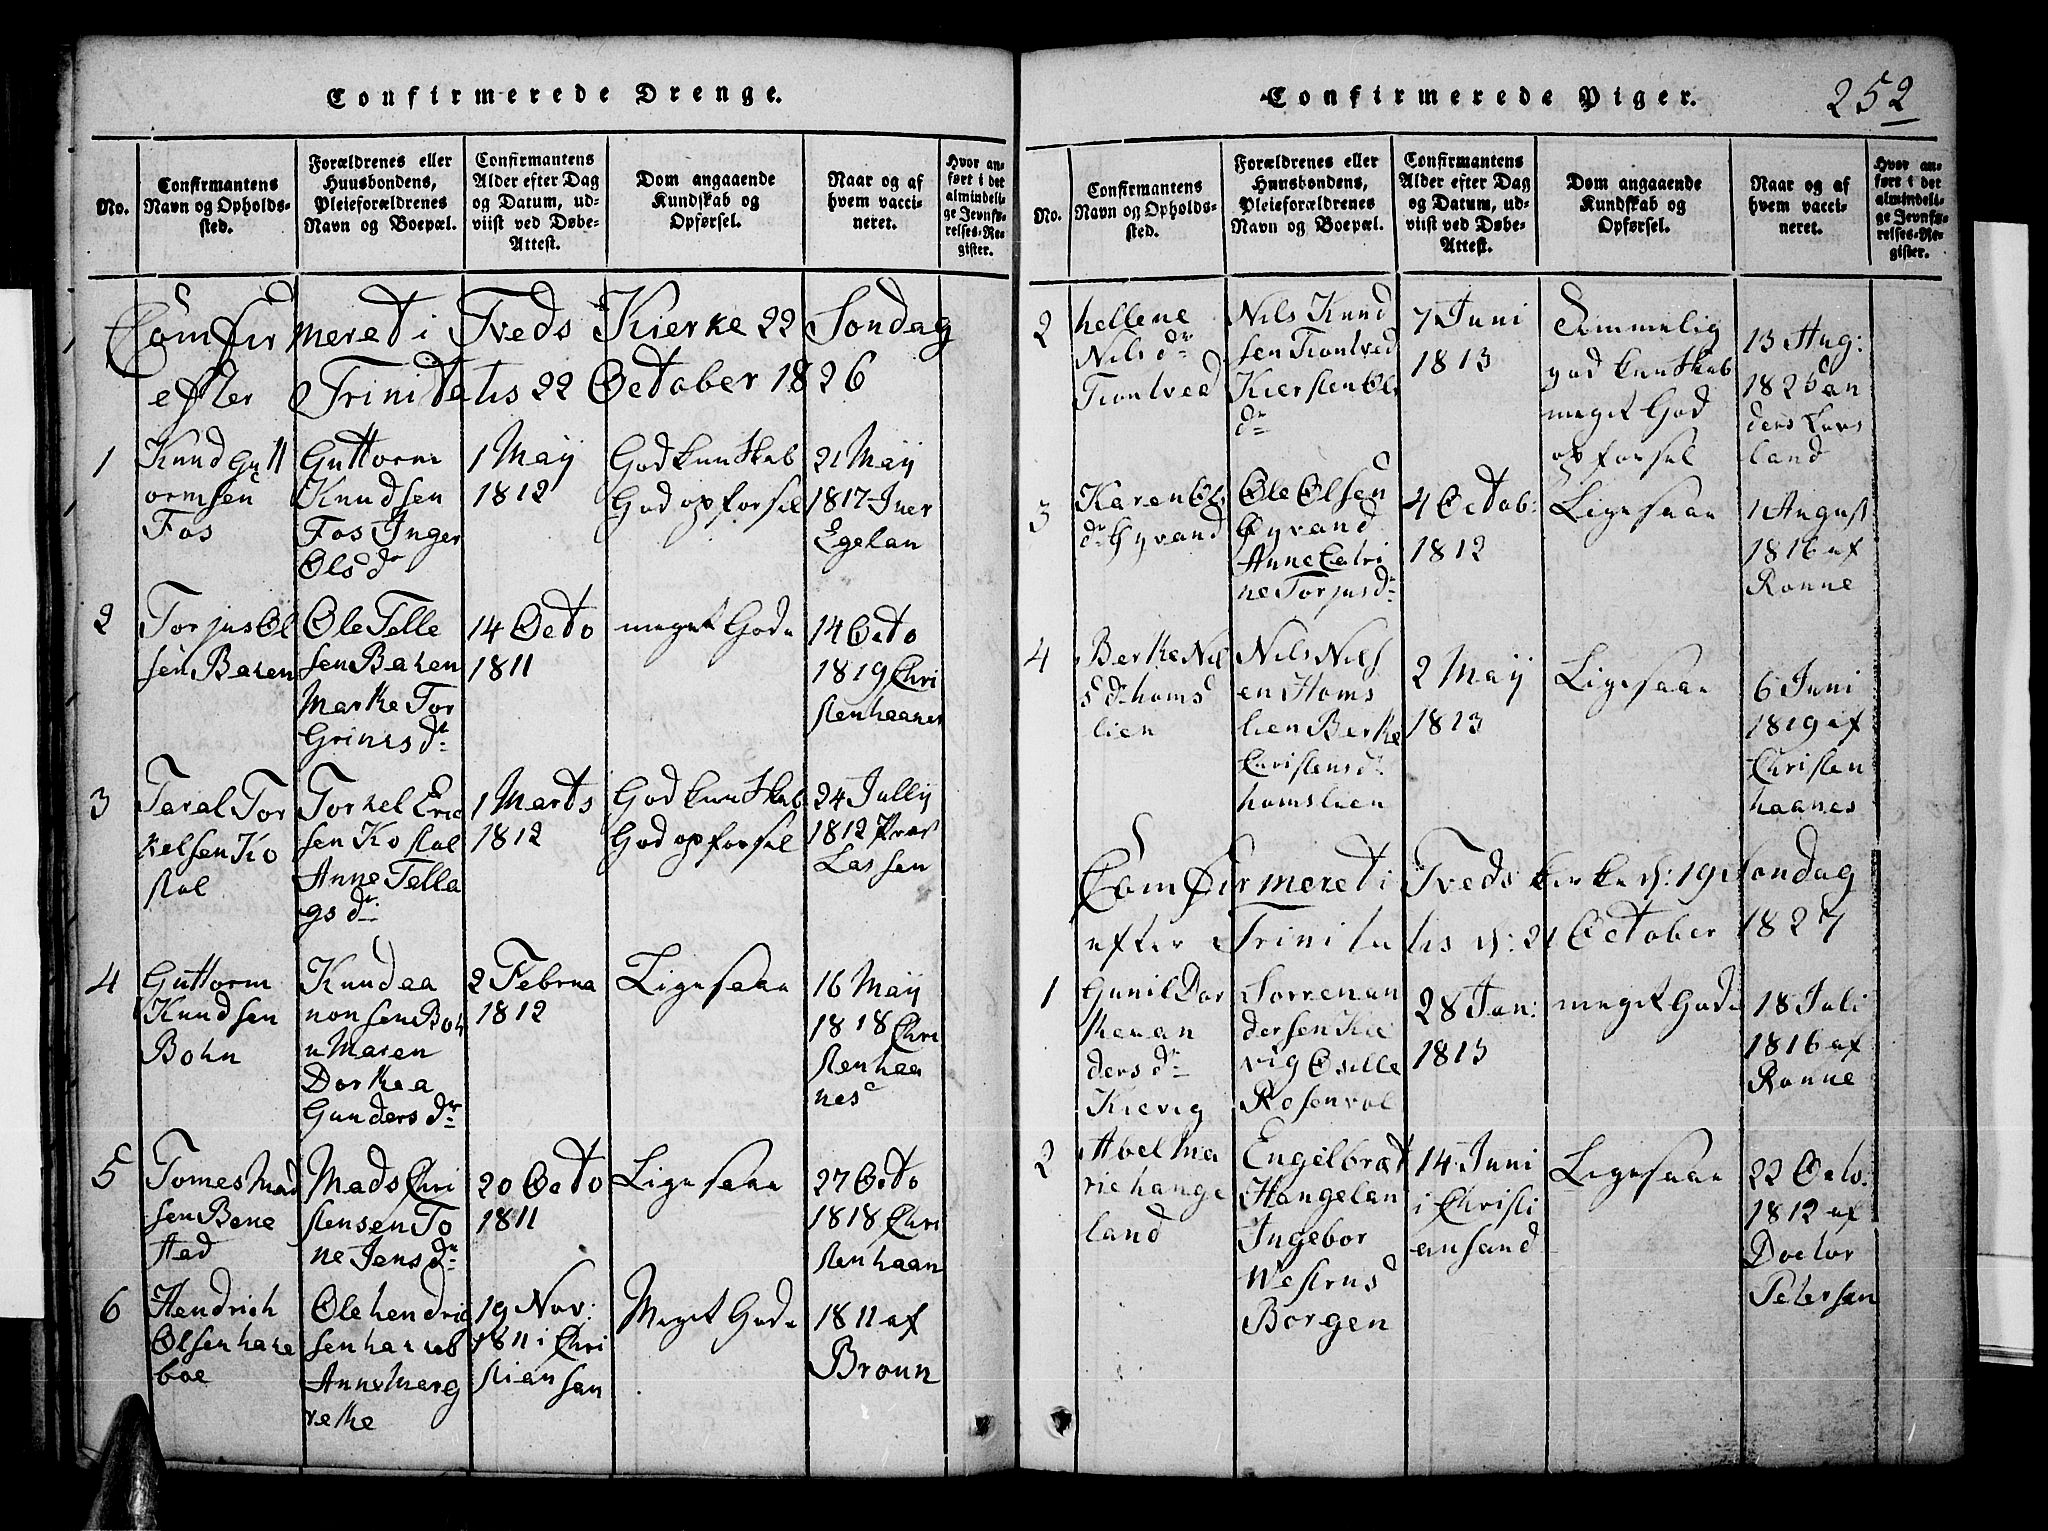 Confirmerede Drenge.
No.
Confirmantens
Navn og Opholds-
sted.
Forældrenes eller
Huusbondens,
Pleieforældrenes
Navn og Boepæl.
Confirmantens
Alder efter Dag
og Datum, ud-
viist ved Døbe-
Attest.
Dom angaaende
Kundskab og
Opførsel.
Naar og af
hvem vacci-
neret.
Hvor an-
ført i det
almindeli-
ge Jevnfø-
relses-Re-
gister.
Comfirmeret i Tveds Kierke 22 Søndag
efter Trinitatis 22 October 1826
1
Knud Gutt
ormsen
Fos
Guttorm
Knudsen
Fos Inger
Olsdr
1 Maÿ
1812
God kunskab
God opførsel
21 Maÿ
1817 Iver
Egelan
2
Torjus Ol
sen Baren
Ole Telle
sen Baren
Marke Tor
Grimsdr
14 Octo
1811
meget Gode
14 Octo
1819 Chri
stenhaanes
3
Taral Tor
kelsen Ko
stol
Torkel Eric
sen Kostol
Anne Tella
gsdr
1 Marts
1812
God kunskab
God opforsel
24 Jullÿ
1812
Lassen
4
Guttorm
Knudsen
Bohn
Knud aa
nonsen Boh
n Maren
Dorkea
Gundersdr
2 Februa
1812
Ligesaa
16 Maÿ
1818 Chri
stenhaa
nes
5
Tomes Mad
sen Bene
stad
Mads Chri
stensen To
ne Jensdr
20 Octo
1811
Ligesaa
27 Octo
1818 Chri
stenhaan
6
Hendrich
Olsen hare
boe
Ole hendric
sen hareb
Anne Marg
rethe
19 Nov:
1811 i Chri
stiansan
Meget Gode
1811 af
Broun
Confirmerede Piger.
252
No.
Confirmantens
Navn og Opholds-
sted.
Forældrenes eller
Huusbondens,
Pleieforældrenes
Navn og Boepæl.
Confirmantens
Alder efter Dag
og Datum, ud-
viist ved Døbe-
Attest.
Dom angaaende
Kundskab og
Opførsel.
Naar og af
hvem vacci-
neret.
Hvor an-
ført i det
almindeli-
ge Jevnfø-
relses-Re-
gister.
2
hellene
Nilsdr
Tiontved
Nils Knud
sen Tiontved
Kiersten Ols
dr
7 Juni
1813
Temmelig
god kunskab
meget God
opforsel
13 Aug:
land
3
Karen Ols
dr Øyvand
Ole Olsen
Øyvand
Anne Catri
ne Torjusdr
4 Octob:
1812
Ligesaa
1 August
1816 af
Rønne
4
Berke Nil
sdr homs
lien
Nils Nils
en Homs
lien Berke
Christensdr
homslien
2 Maÿ
1813
Ligesaa
6 Juni
1819 af
Christen
haanes
Comfirmeret i Tveds kirke d: 19 Søndag
efter Trinitatis d: 21 October 1827
1
Gunil Dor
kea an
dersdr
Kievig
Sørren an
dersen Kie
vig Osille
Rosenvol
28 Jan:
1813
meget Gode
18 Juli
1816 af
Rønne
2
Abel Ma
rie hange
land
Engelbræt
Hangelan
Ingebor
Westrus
Borgen
14 Juni
i Christi
ansand
Ligesaa
22 Octo:
1812 af
Doctor
Petersen